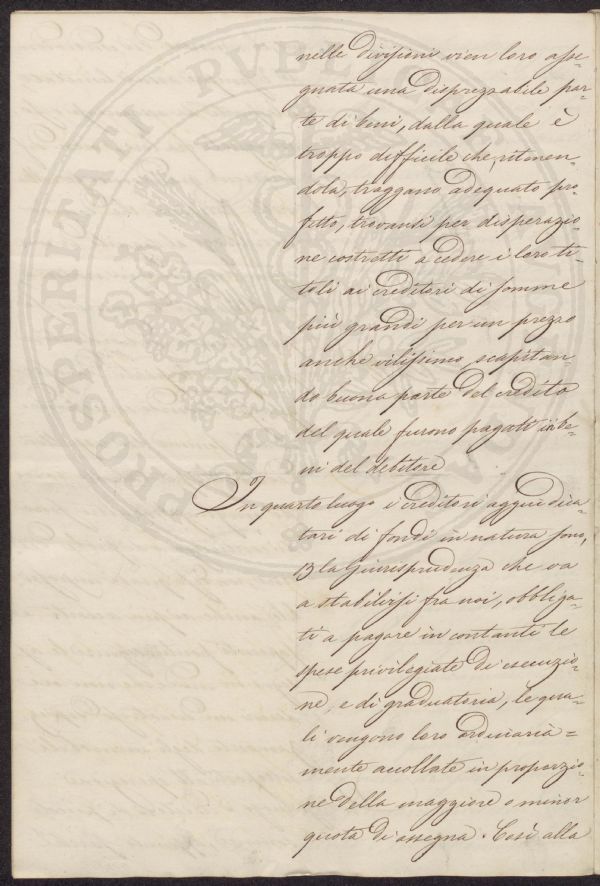 nelle divisioni vien loro asse=
gnata una disprezzabile par=
te di beni, dalla quale è
troppo difficile che, ritenen=
dola, traggano adequato pro=
fitto, trovansi per disperazio=
ne costretti a cedere i loro ti=
toli ai creditori di somme
più grandi per un prezzo
anche vilissimo, scapitan=
do buona parte del credito
del quale furono pagati in be=
ni del debitore
In quarto luogo i creditori aggiudica=
tari di fondi in natura sono,
la giurisprudenza che va
a stabilirsi fra noi, obbliga=
ti a pagare in contanti le
spese privilegiate di esecuzio=
ne, e di graduatoria, le qua=
li vengono loro ordinaria=
mente accollate in proporzio=
ne della maggiore o minor
quota di assegna. Così alla
PROSPERITATI PVBLICAE